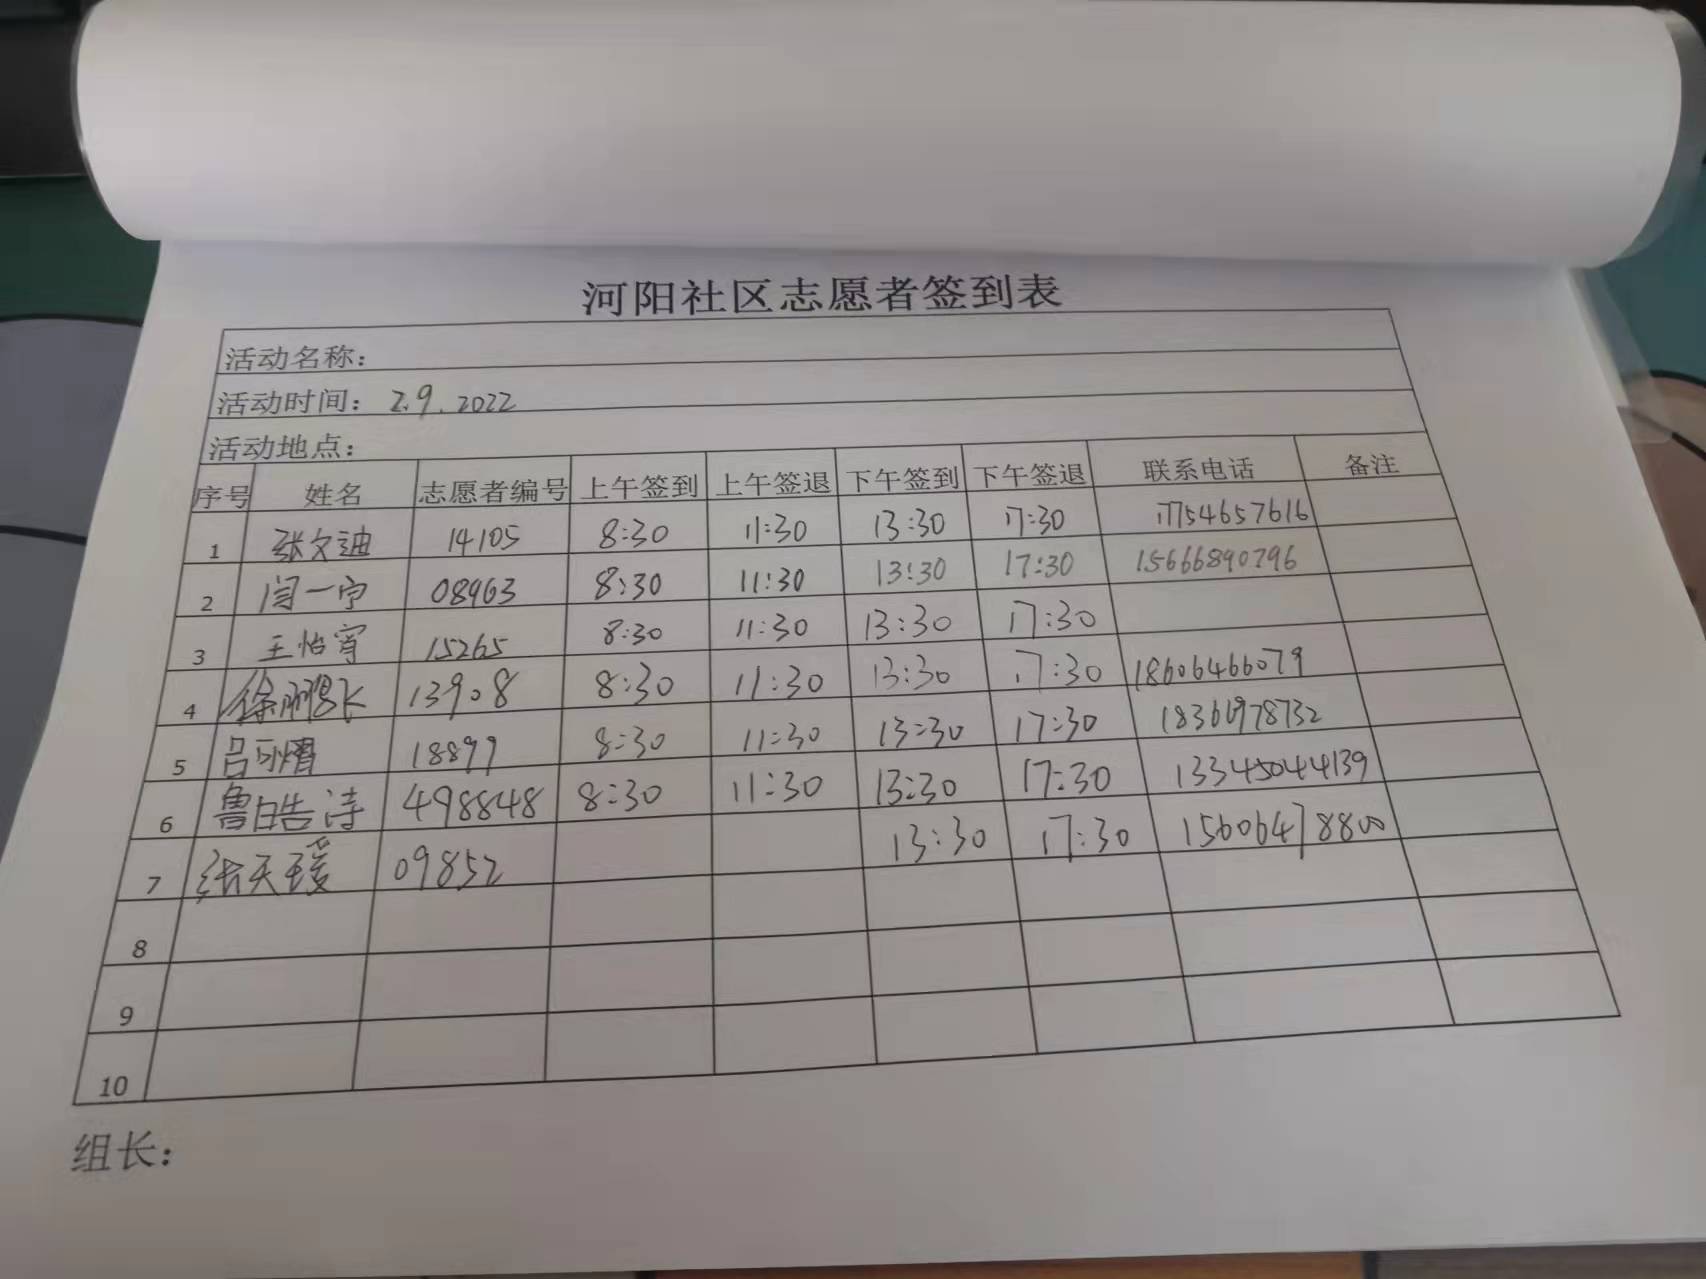 河阳社区志愿者签到表
活动名称：
活动时间： 2.9.2022
活动地点：
序号 姓名 志愿者编号 上午签到 上午签退 下午签到 下午签退 联系电话 备注
1 张文迪 14105 8:30 11:30 13:30 17:30 17754657616
2 闫一宁 08963 8:30 11:30 13:30 17:30 15666890796
3 王怡宵 15265 8:30 11:30 13:30 17:30
4 徐鹏飞 13908 8:30 11:30 13:30 17:30 18606466079
5 18899 8:30 11:30 13:30 17:30 18361978732
6 鲁皓诗 498848 8:30 11:30 13:30 17:30 13345044139
7 张天瑷 09852 13:30 17:30 15606478800
8
9
10
组长：